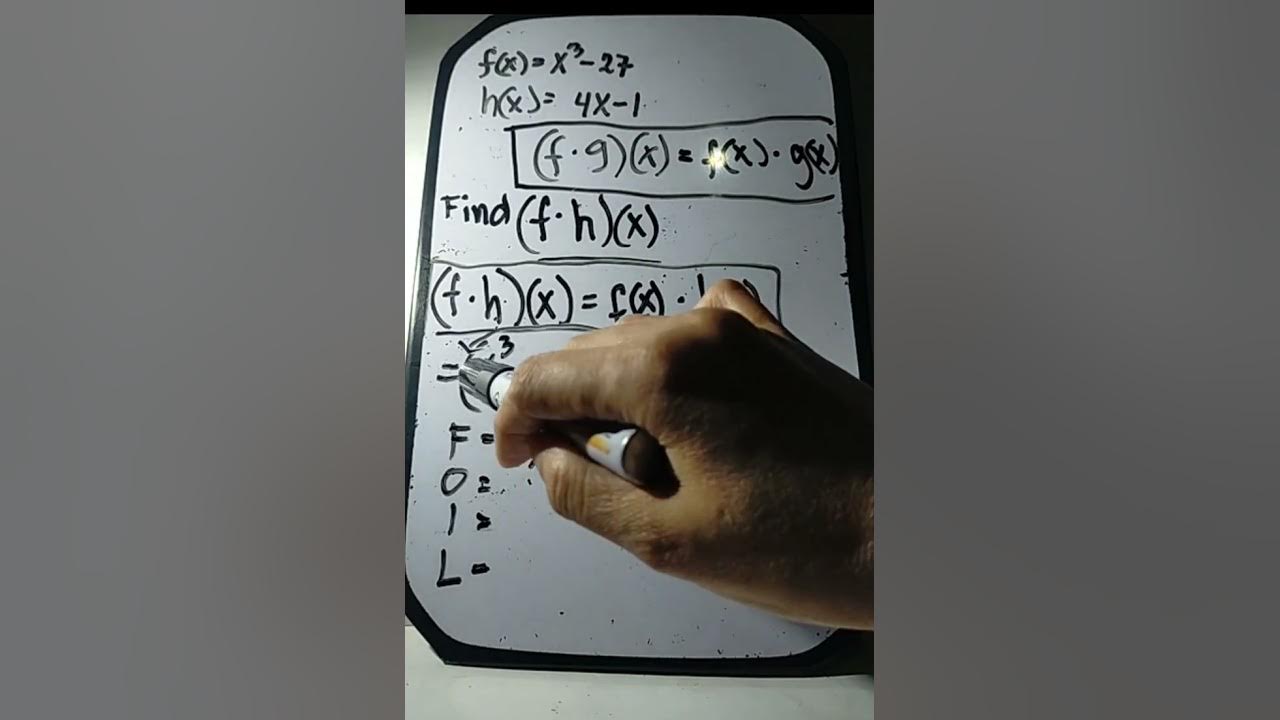 f(x) = x³ - 27
h(x) = 4x - 1
(f · g)(x) = f(x) · g(x)
Find (f · h)(x)
(f · h)(x) = f(x) ·
= 3
F =
O =
I =
L =